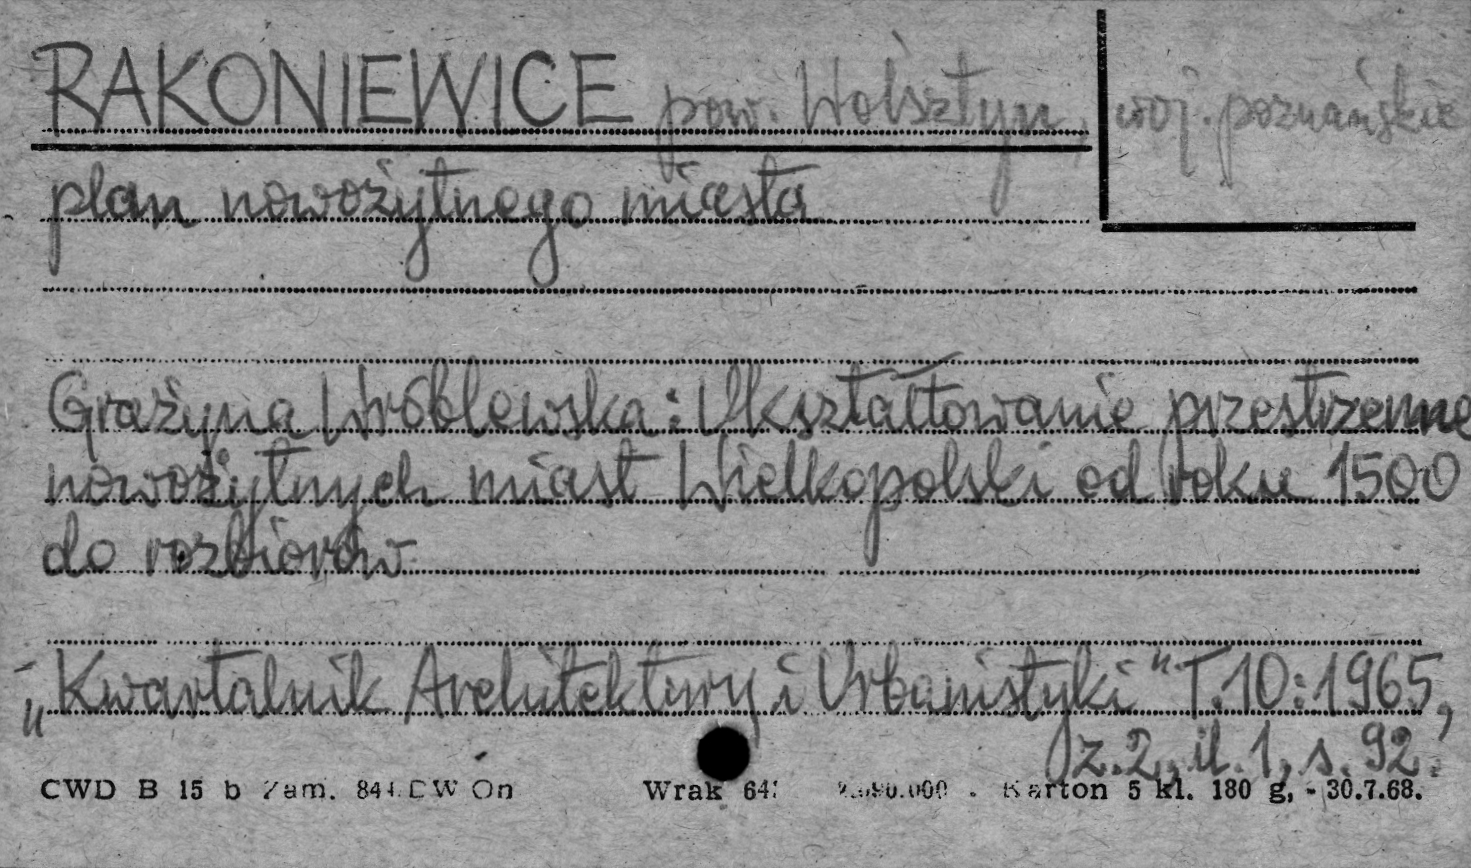 RAKONIEWICE pow. Wolsztyn, woj. poznańskie
plan nowożytnego miasta
Grażyna Wróblewska: Ukształtowanie przestrzenne
nowożytnych miast Wielkopolski od roku 1500
do rozbiorów
„Kwartalnik Architektury i Urbanistyki" T.10:1965,
z.2, il.1, s.92.
CWD B 15 b Zam. CW On Wrak Karton 5 kl. 180 g, - 30.7.68.